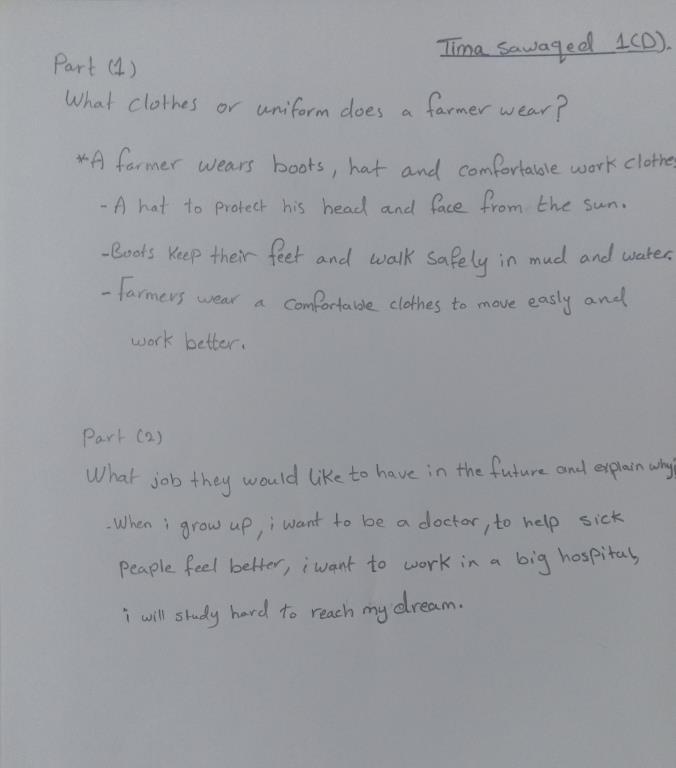 Tima Sawaqed 1(D).
Part (1)
What clothes or uniform does a farmer wear?
*A farmer wears boots, hat and comfortable work clothes
- A hat to protect his head and face from the sun.
- Boots keep their feet and walk safely in mud and water.
- Farmers wear a comfortable clothes to move easly and
work better.
Part (2)
What job they would like to have in the future and explain why;
- When i grow up, i want to be a doctor, to help sick
peaple feel better, i want to work in a big hospital,
i will study hard to reach my dream.